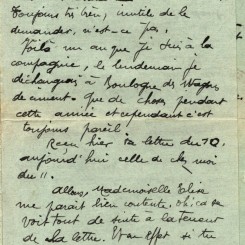 Toujours très bien, inutile de le
demander, n'est-ce pas,
Voilà un an que je suis à la
compagnie, le lendemain je
déchargeais à Boulogne des wagons
de ciment. Que de choses pendant
cette année et cependant c'est
toujours pareil.
Reçu hier ta lettre du 10.
aujourd'hui celle de chez moi
du 11.
Allons, Mademoiselle Elise
me parait bien contente, oh! ça se
voit tout de suite à la teneur
de la lettre. Et en effet si tu